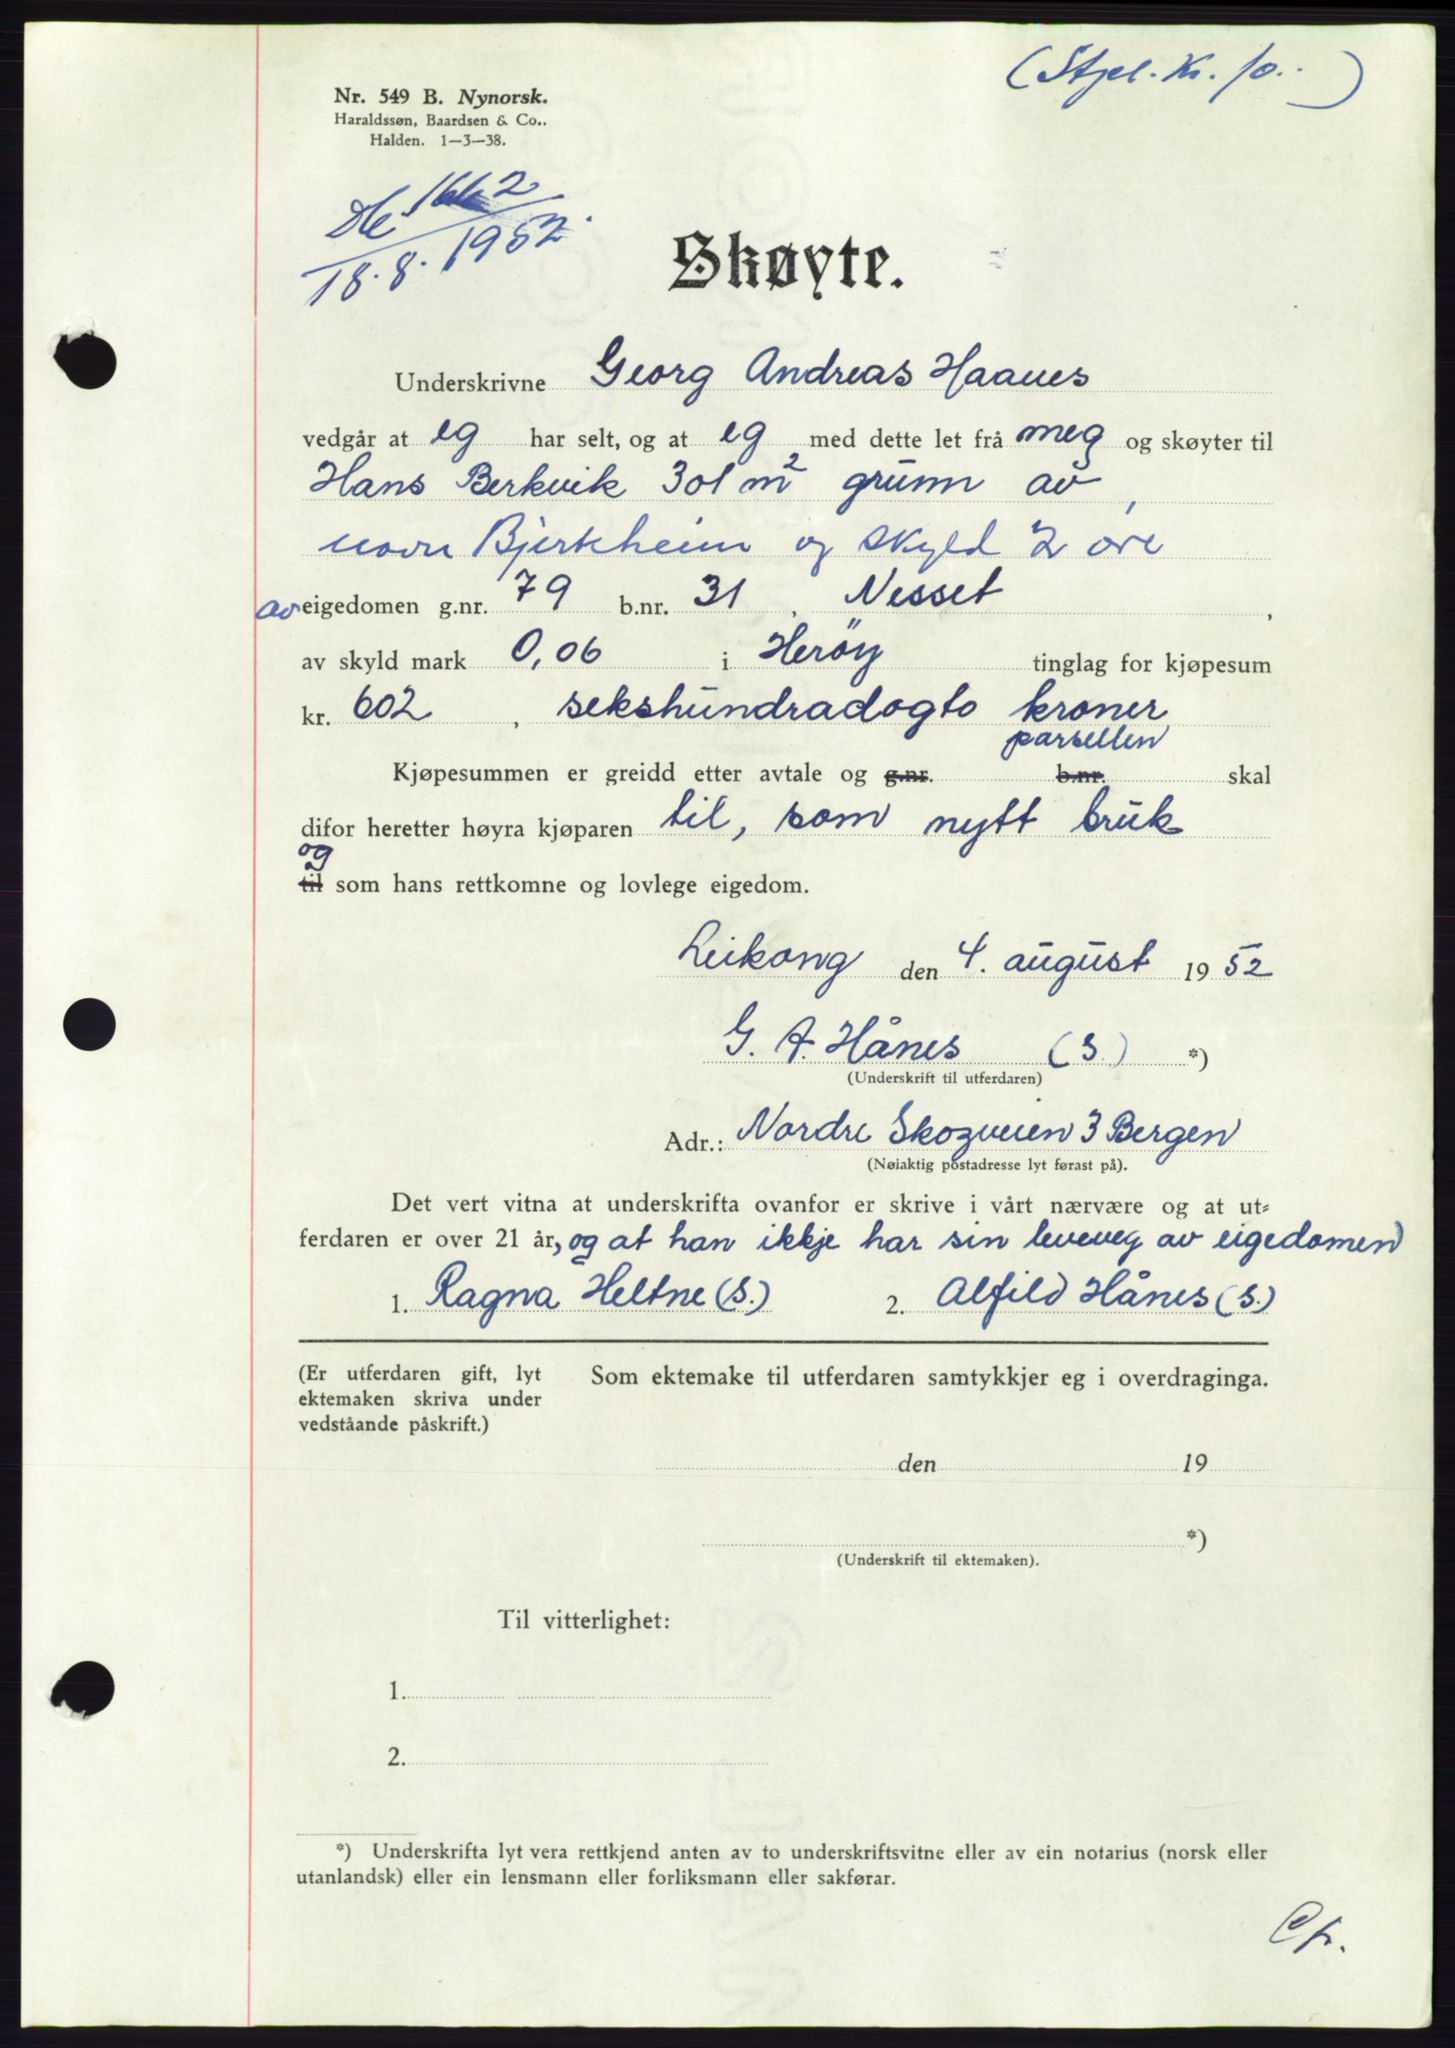 (Stpel. Kr. 10.. )
Nr. 549 B. Nynorsk.
Haraldssøn, Baardsen & Co..
Halden. 1—3—38.
1662
18.8.1952.
Skøyte.
Underskrivne Georg Andreas Haanes
vedgår at eg har selt, og at eg med dette let frå meg og skøyter til
Hans Berkvik 301 m² grunn av,
navn Bjerkheim og skyld 2 øre
av eigedomen g.nr. 79 b.nr. 31, Nesset,
av skyld mark 0,06 i Herøy tinglag for kjøpesum
kr. 602, sekshundradogto kroner
parsellen
Kjøpesummen er greidd etter avtale og g.nr. b.nr. skal
difor heretter høyra kjøparen til, som nytt bruk
og
til som hans rettkomne og lovlege eigedom.
Leikong den 4. august 1952
G. A. Hånes (s.) *)
(Underskrift til utferdaren)
Adr.: Nordre Skogveien 3 Bergen
(Nøiaktig postadresse lyt førast på).
Det vert vitna at underskrifta ovanfor er skrive i vårt nærvære og at ut-
ferdaren er over 21 år, og at han ikkje har sin leveveg av eigedomen
1. Ragna Heltne (s.) 2. Alfild Hånes (s.)
(Er utferdaren gift, lyt
ektemaken skriva under
vedståande påskrift.)
Som ektemake til utferdaren samtykkjer eg i overdraginga.
den 19
*)
(Underskrift til ektemaken).
Til vitterlighet:
1.
2.
*) Underskrifta lyt vera rettkjend anten av to underskriftsvitne eller av ein notarius (norsk eller
utanlandsk) eller ein lensmann eller forliksmann eller sakførar.